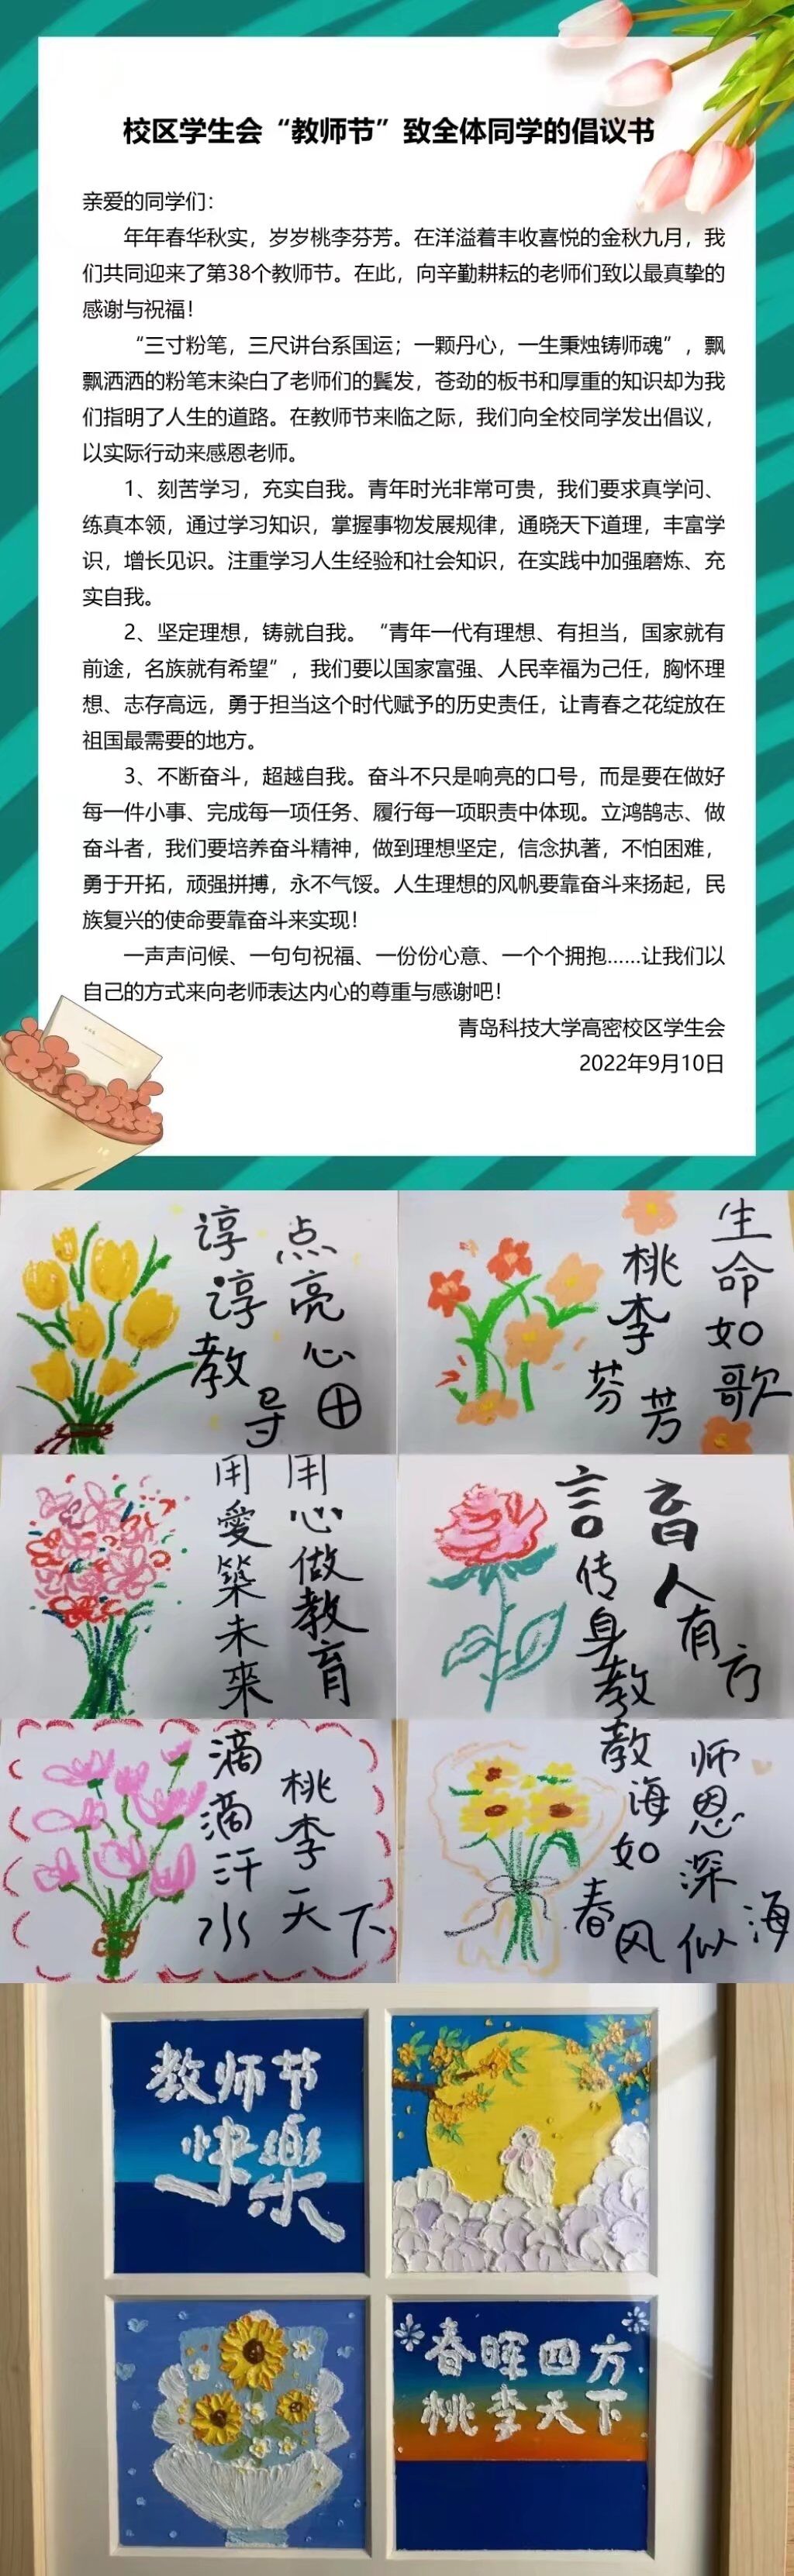 校区学生会“教师节”致全体同学的倡议书
亲爱的同学们：
年年春华秋实，岁岁桃李芬芳。在洋溢着丰收喜悦的金秋九月，我
们共同迎来了第38个教师节。在此，向辛勤耕耘的老师们致以最真挚的
感谢与祝福！
“三寸粉笔，三尺讲台系国运；一颗丹心，一生秉烛铸师魂”，飘
飘洒洒的粉笔末染白了老师们的鬓发，苍劲的板书和厚重的知识却为我
们指明了人生的道路。在教师节来临之际，我们向全校同学发出倡议，
以实际行动来感恩老师。
1、刻苦学习，充实自我。青年时光非常可贵，我们要求真学问、
练真本领，通过学习知识，掌握事物发展规律，通晓天下道理，丰富学
识，增长见识。注重学习人生经验和社会知识，在实践中加强磨炼、充
实自我。
2、坚定理想，铸就自我。“青年一代有理想、有担当，国家就有
前途，名族就有希望”，我们要以国家富强、人民幸福为己任，胸怀理
想、志存高远，勇于担当这个时代赋予的历史责任，让青春之花绽放在
祖国最需要的地方。
3、不断奋斗，超越自我。奋斗不只是响亮的口号，而是要在做好
每一件小事、完成每一项任务、履行每一项职责中体现。立鸿鹄志、做
奋斗者，我们要培养奋斗精神，做到理想坚定，信念执著，不怕困难，
勇于开拓，顽强拼搏，永不气馁。人生理想的风帆要靠奋斗来扬起，民
族复兴的使命要靠奋斗来实现！
一声声问候、一句句祝福、一份份心意、一个个拥抱......让我们以
自己的方式来向老师表达内心的尊重与感谢吧！
青岛科技大学高密校区学生会
2022年9月10日
谆谆教导
点亮心田
生命如歌
桃李芬芳
用心做教育
用愛築未來
育人有方
言传身教
滴滴汗水
桃李天下
师恩深似海
教诲如春风
教师节
快樂
春暉四方
桃李天下